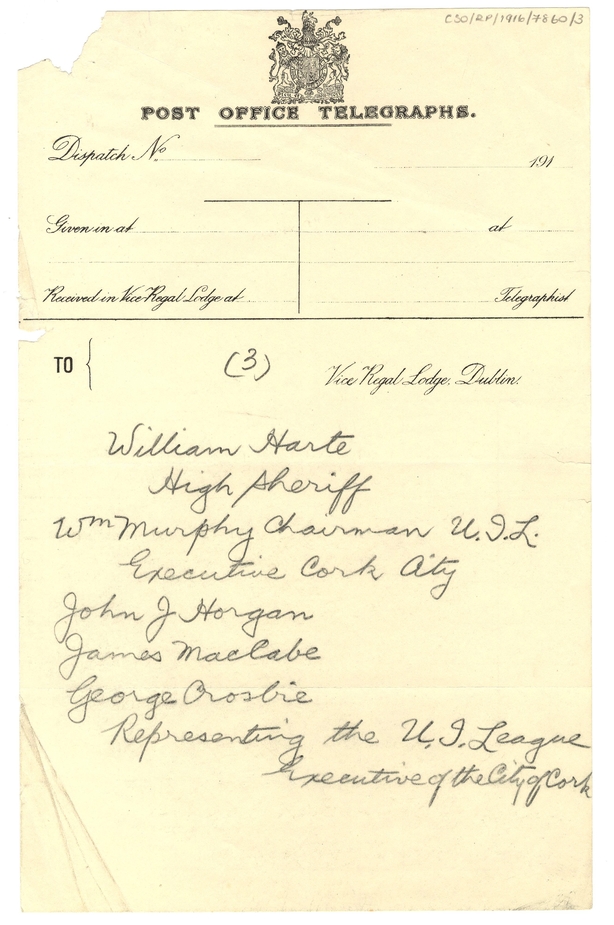 CSO/RP/1916/7860/3
POST OFFICE TELEGRAPHS.
Dispatch No.
191
Given in at
at
Received in Vice Regal Lodge at
Telegraphist
TO
(3)
Vice Regal Lodge, Dublin.
William Harte
High Sheriff
Wm Murphy Chairman U.I.L.
Executive Cork City
John J Horgan
James MacCabe
George Crosbie
Representing the U.I. League
Executive of the City of Cork